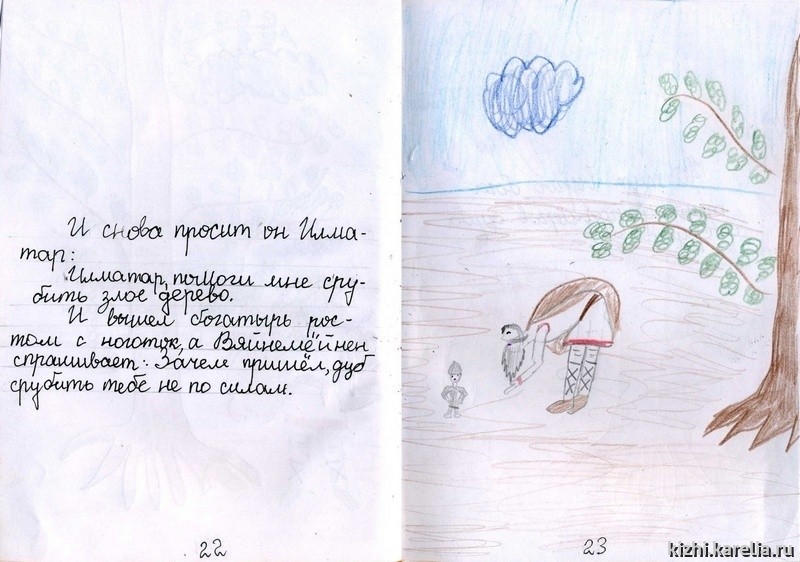 И снова просит он Илма-
тар:
Илматар, помоги мне сру-
бить злое дерево.
И вышел богатырь рос-
том с ноготок, а Вяйнемёйнен
спрашивает: Зачем пришёл, дуб
срубить тебе не по силам.
22
23
kizhi.karelia.ru